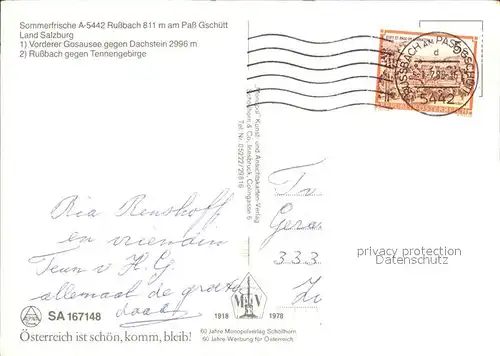 Sommerfrische A-5442 Rußbach 811 m am Paß Gschütt
Land Salzburg
1) Vorderer Gosausee gegen Dachstein 2996 m
2) Rußbach gegen Tennengebirge
RUSSBACH AM PASS GSCHÜTT
5442
"Monopol" Kunst- und Ansichtskarten-Verlag
Schöllhorn & Co., Innsbruck,
Tel. Nr. 05222/29816
Ria Renskoff
en vrienin
Teun v H.G.
allemaal de groeten
Gera
333
privacy protection watermark
SA 167148
Österreich ist schön, komm, bleib!
1918 1978
60 Jahre Monopolverlag Schöllhorn
60 Jahre Werbung für Österreich